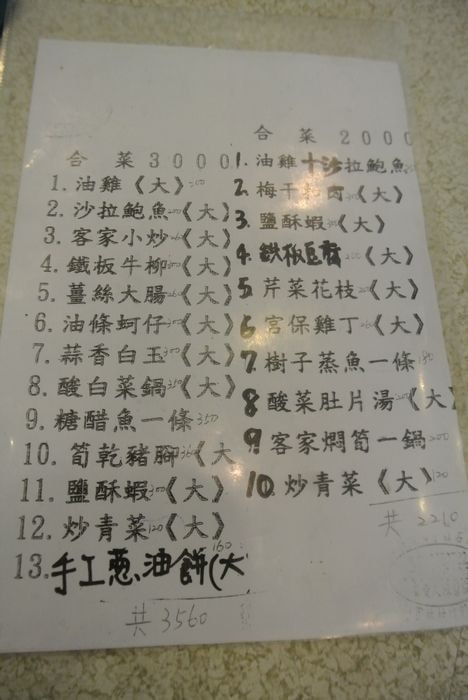 合 菜 3000
1. 油雞《大》
2. 沙拉鮑魚《大》
3. 客家小炒《大》
4. 鐵板牛柳《大》
5. 薑絲大腸《大》
6. 油條蚵仔《大》
7. 蒜香白玉《大》
8. 酸白菜鍋《大》
9. 糖醋魚一條350
10. 筍乾豬腳《大
11. 鹽酥蝦《大》
12. 炒青菜120《大》
13. 手工蔥油餅(大 160
共 3560
合 菜 2000
1. 油雞十沙拉鮑魚
2. 梅干扣肉《大》
3. 鹽酥蝦《大》
4. 鉄板豆腐《大》
5. 芹菜花枝《大》
6. 宮保雞丁《大》
7. 樹子蒸魚一條
8. 酸菜肚片湯《大》
9. 客家燜筍一鍋
10. 炒青菜《大》120
共 2210